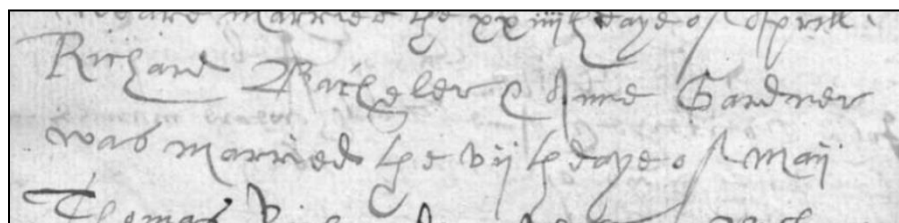 weare married the xxiiijth daye of Aprill.
Richard Bacheler & Anne Gardner
was married the vijth daye of Maij
Thomas